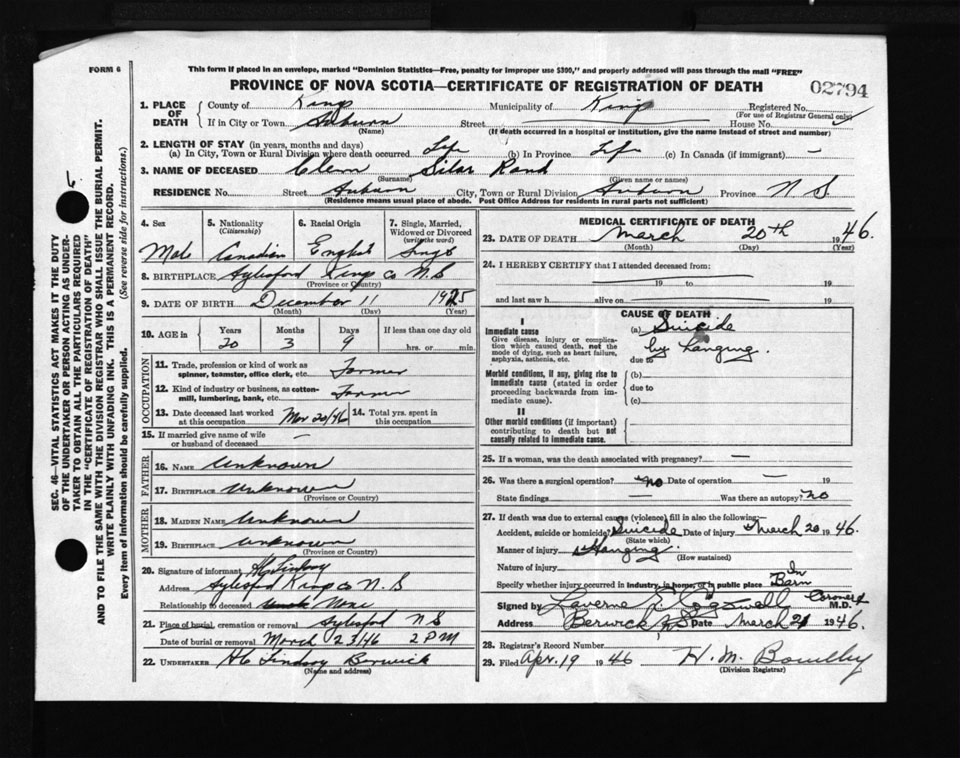 FORM 6
This form if placed in an envelope, marked "Dominion Statistics—Free, penalty for improper use $300," and properly addressed will pass through the mail "FREE"
PROVINCE OF NOVA SCOTIA—CERTIFICATE OF REGISTRATION OF DEATH
02794
1. PLACE OF DEATH
County of Kings Municipality of Kings Registered No.
(For use of Registrar General only)
If in City or Town Auburn Street House No.
(Name) (If death occurred in a hospital or institution, give the name instead of street and number)
2. LENGTH OF STAY (in years, months and days)
(a) In City, Town or Rural Division where death occurred Life (b) In Province Life (c) In Canada (if immigrant) —
3. NAME OF DECEASED Glenn Silas Rand
(Surname) (Given name or names)
RESIDENCE No. Street Auburn City, Town or Rural Division Auburn Province N S.
(Residence means usual place of abode. Post Office Address for residents in rural parts not sufficient)
4. Sex 5. Nationality (Citizenship) 6. Racial Origin 7. Single, Married, Widowed or Divorced (write the word)
Male Canadian English Single
8. BIRTHPLACE Aylesford Kings Co N.S
(Province or Country)
9. DATE OF BIRTH December 11 1925
(Month) (Day) (Year)
10. AGE in Years Months Days If less than one day old
20 3 9 hrs. or min.
OCCUPATION
11. Trade, profession or kind of work as spinner, teamster, office clerk, etc. Farmer
12. Kind of industry or business, as cotton-mill, lumbering, bank, etc. Farmer
13. Date deceased last worked at this occupation Mar 20/46 14. Total yrs. spent in this occupation
15. If married give name of wife or husband of deceased —
FATHER
16. NAME Unknown
17. BIRTHPLACE Unknown
(Province or Country)
MOTHER
18. MAIDEN NAME Unknown
19. BIRTHPLACE Unknown
(Province or Country)
20. Signature of informant H G Lindsay
Address Aylesford Kings Co N.S
Relationship to deceased None
21. Place of burial, cremation or removal Aylesford N S
Date of burial or removal March 23/46 2 PM
22. UNDERTAKER Lindsay Berwick
(Name and address)
MEDICAL CERTIFICATE OF DEATH
23. DATE OF DEATH March 20th 1946.
(Month) (Day) (Year)
24. I HEREBY CERTIFY that I attended deceased from:
19 to 19
and last saw h alive on 19
CAUSE OF DEATH
I
Immediate cause (a) Suicide
Give disease, injury or complication which caused death, not the mode of dying, such as heart failure, asphyxia, asthenia, etc.
by hanging.
due to
Morbid conditions, if any, giving rise to immediate cause (stated in order proceeding backwards from immediate cause).
(b)
due to
(c)
II
Other morbid conditions (if important) contributing to death but not causally related to immediate cause.
25. If a woman, was the death associated with pregnancy? —
26. Was there a surgical operation? No Date of operation —
State findings — Was there an autopsy? No
27. If death was due to external causes (violence) fill in also the following:—
Accident, suicide or homicide? Suicide Date of injury March 20 1946.
(State which)
Manner of injury Hanging.
(How sustained)
Nature of injury
Specify whether injury occurred in industry, in home, or in public place In Barn
Signed by Laverne Cogswell Coroner M.D.
Address Berwick NS Date March 21 1946.
28. Registrar's Record Number
29. Filed Apr. 19 1946 H. M. Bowlby
(Division Registrar)
SEC. 46—VITAL STATISTICS ACT MAKES IT THE DUTY
OF THE UNDERTAKER OR PERSON ACTING AS UNDER-
TAKER TO OBTAIN ALL THE PARTICULARS REQUIRED
IN THE "CERTIFICATE OF REGISTRATION OF DEATH"
AND TO FILE THE SAME WITH THE DIVISION REGISTRAR WHO SHALL ISSUE THE BURIAL PERMIT.
WRITE PLAINLY WITH UNFADING INK. THIS IS A PERMANENT RECORD.
Every item of information should be carefully supplied. (See reverse side for instructions.)